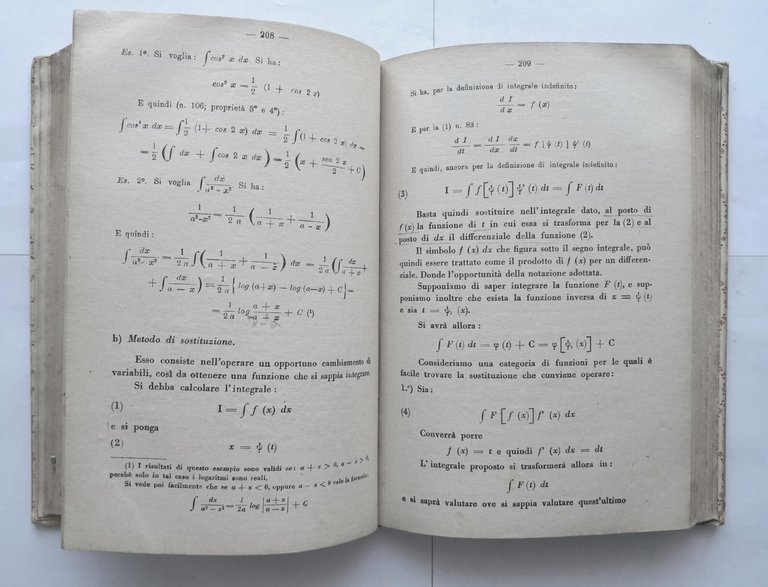 — 208 —
Es. 1º. Si voglia: ∫cos² x dx. Si ha:
cos² x = 1/2 (1 + cos 2 x)
E quindi (n. 106; proprietà 3ª e 4ª):
∫cos² x dx = ∫ 1/2 (1 + cos 2 x) dx = 1/2 ∫(1 + cos 2 x) dx =
= 1/2 (∫ dx + ∫ cos 2 x dx) = 1/2 (x + sen 2 x / 2 + C)
Es. 2º. Si voglia ∫ dx / a² - x² Si ha:
1 / a² - x² = 1 / 2 a (1 / a + x + 1 / a - x)
E quindi:
∫ dx / a² - x² = 1 / 2 a ∫(1 / a + x + 1 / a - x) dx = 1 / 2 a (∫ dx / a + x +
+ ∫ dx / a - x) = 1 / 2 a { log (a+x) - log (a-x) + C } =
= 1 / 2 a log a + x / a + x + C (¹)
b) Metodo di sostituzione.
Esso consiste nell'operare un opportuno cambiamento di
variabili, così da ottenere una funzione che si sappia integrare.
Si debba calcolare l'integrale:
(1) I = ∫ f (x) dx
e si ponga
(2) x = ψ (t)
(1) I risultati di questo esempio sono validi se: a + x > 0, a - x > 0,
perchè solo in tal caso i logaritmi sono reali.
Si vede poi facilmente che se a + x < 0, oppure a - x < 0 vale la formola:
∫ dx / a² - x² = 1 / 2a log |a + x / a - x| + C
— 209 —
Si ha, per la definizione di integrale indefinito:
d I / d x = f (x)
E per la (1) n. 83:
d I / dt = d I / dx dx / dt = f [ψ (t)] ψ' (t)
E quindi, ancora per la definizione di integrale indefinito:
(3) I = ∫ f [ψ (t)] ψ' (t) dt = ∫ F (t) dt
Basta quindi sostituire nell'integrale dato, al posto di
f (x) la funzione di t in cui essa si trasforma per la (2) e al
posto di dx il differenziale della funzione (2).
Il simbolo f (x) dx che figura sotto il segno integrale, può
quindi essere trattato come il prodotto di f (x) per un differen-
ziale. Donde l'opportunità della notazione adottata.
Supponiamo di saper integrare la funzione F (t), e sup-
poniamo inoltre che esista la funzione inversa di x = ψ (t)
e sia t = ψ₁ (x).
Si avrà allora:
∫ F (t) dt = φ (t) + C = φ [ψ₁ (x)] + C
Consideriamo una categoria di funzioni per le quali è
facile trovare la sostituzione che conviene operare:
1.º) Sia:
(4) ∫ F [f (x)] f' (x) dx
Converrà porre
f (x) = t e quindi f' (x) dx = dt
L'integrale proposto si trasformerà allora in:
∫ F (t) dt
e si saprà valutare ove si sappia valutare quest'ultimo